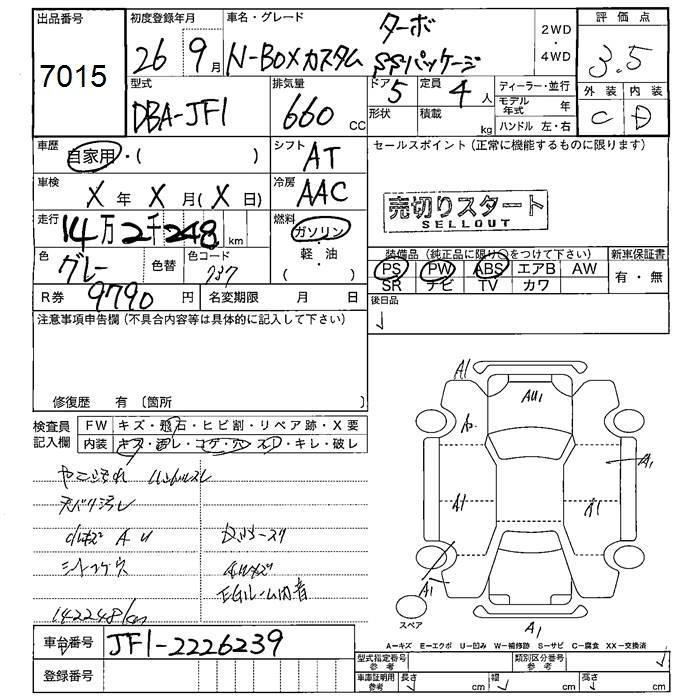 出品番号 7015
初度登録年月 26 9月
車名・グレード ターボ
N-BOXカスタム SSパッケージ
2WD・4WD
評価点 3.5
外装 内装
C D
型式 DBA-JF1
排気量 660 CC
ドア 5
形状
定員 4人
積載 kg
ディーラー・並行
モデル年式 年
ハンドル 左・右
車歴 自家用・( )
シフト AT
セールスポイント(正常に機能するものに限ります)
車検 X年X月(X日)
冷房 AAC
売切りスタート
SELLOUT
走行 14万2千248km
燃料 ガソリン・軽・油( )
色 グレー 色替 色コード 737
装備品(純正品に限り○をつけて下さい) 新車保証書
PS PW ABS エアB AW 有・無
SR ナビ TV カワ
R券 9790円 名変期限 月 日
後日品
注意事項申告欄(不具合内容等は具体的に記入して下さい)
修復歴 有〔箇所
検査員記入欄
FW キズ・飛石・ヒビ割・リペア跡・X要
内装 キズ・汚レ・コゲ・穴・スレ・キレ・破レ
ハンドルスレ
天バリ汚レ
EGルーム内音
142248km
A1
AU1
A1
A1
A1
A1
A1
スペア
A=キズ E=エクボ U=凹み W=補修跡 S=サビ C=腐食 XX=交換済
車台番号 JF1-2226239
登録番号
型式指定番号参考 類別区分番号参考
車庫証明用参考 長さ cm 幅 cm 高さ cm